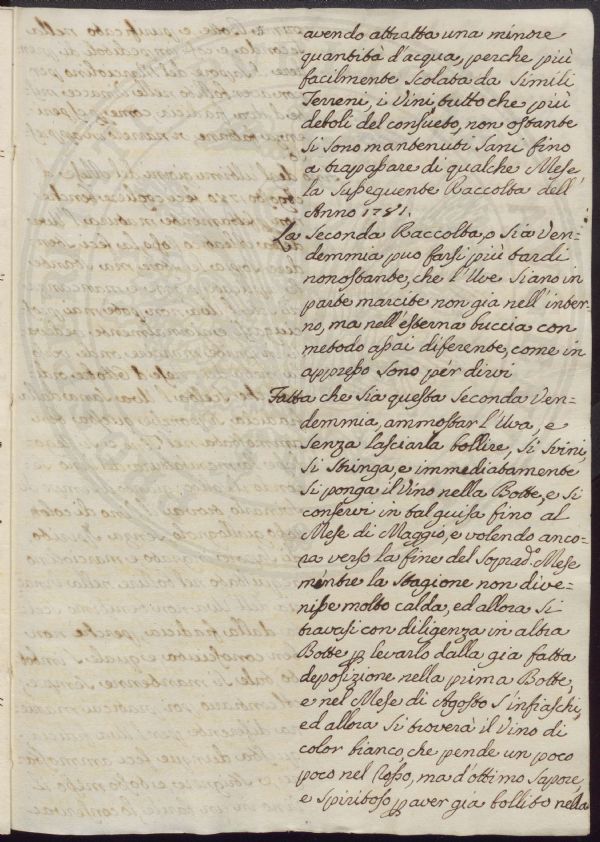 avendo attratta una minore
quantità d'acqua, perche più
facilmente Scolata da Simili
Terreni, i Vini tutto che più
deboli del consueto, non ostante
Si Sono mantenuti Sani fino
a trapassare di qualche Mese
la Susseguente Raccolta dell'
Anno 1781.
La Seconda Raccolta, o Sia Ven=
demmia puo farsi più tardi
nonostante, che l'Uve Siano in
parte marcite non gia nell'inter=
no, ma nell'esterna buccia con
metodo assai diferente, come in
appresso Sono per dirvi
Fatta che Sia questa Seconda Ven=
demmia, ammostar l'Uva, e
Senza lasciarla bollire, Si Svini,
Si Stringa, e immediatamente
Si ponga il Vino nella Botte, e Si
conservi in tal guisa fino al
Mese di Maggio, e volendo anco=
ra verso la fine del Soprad.o Mese
mentre la Stagione non dive=
nisse molto calda, ed allora Si
travasi con diligenza in altra
Botte p levarlo dalla gia fatta
deposizione nella prima Botte,
e nel Mese di Agosto S'infiaschi,
ed allora Si troverà il Vino di
color bianco, che pende un poco
poco nel Rosso, ma d'ottimo Sapore,
e Spiritoso p aver gia bollito nella